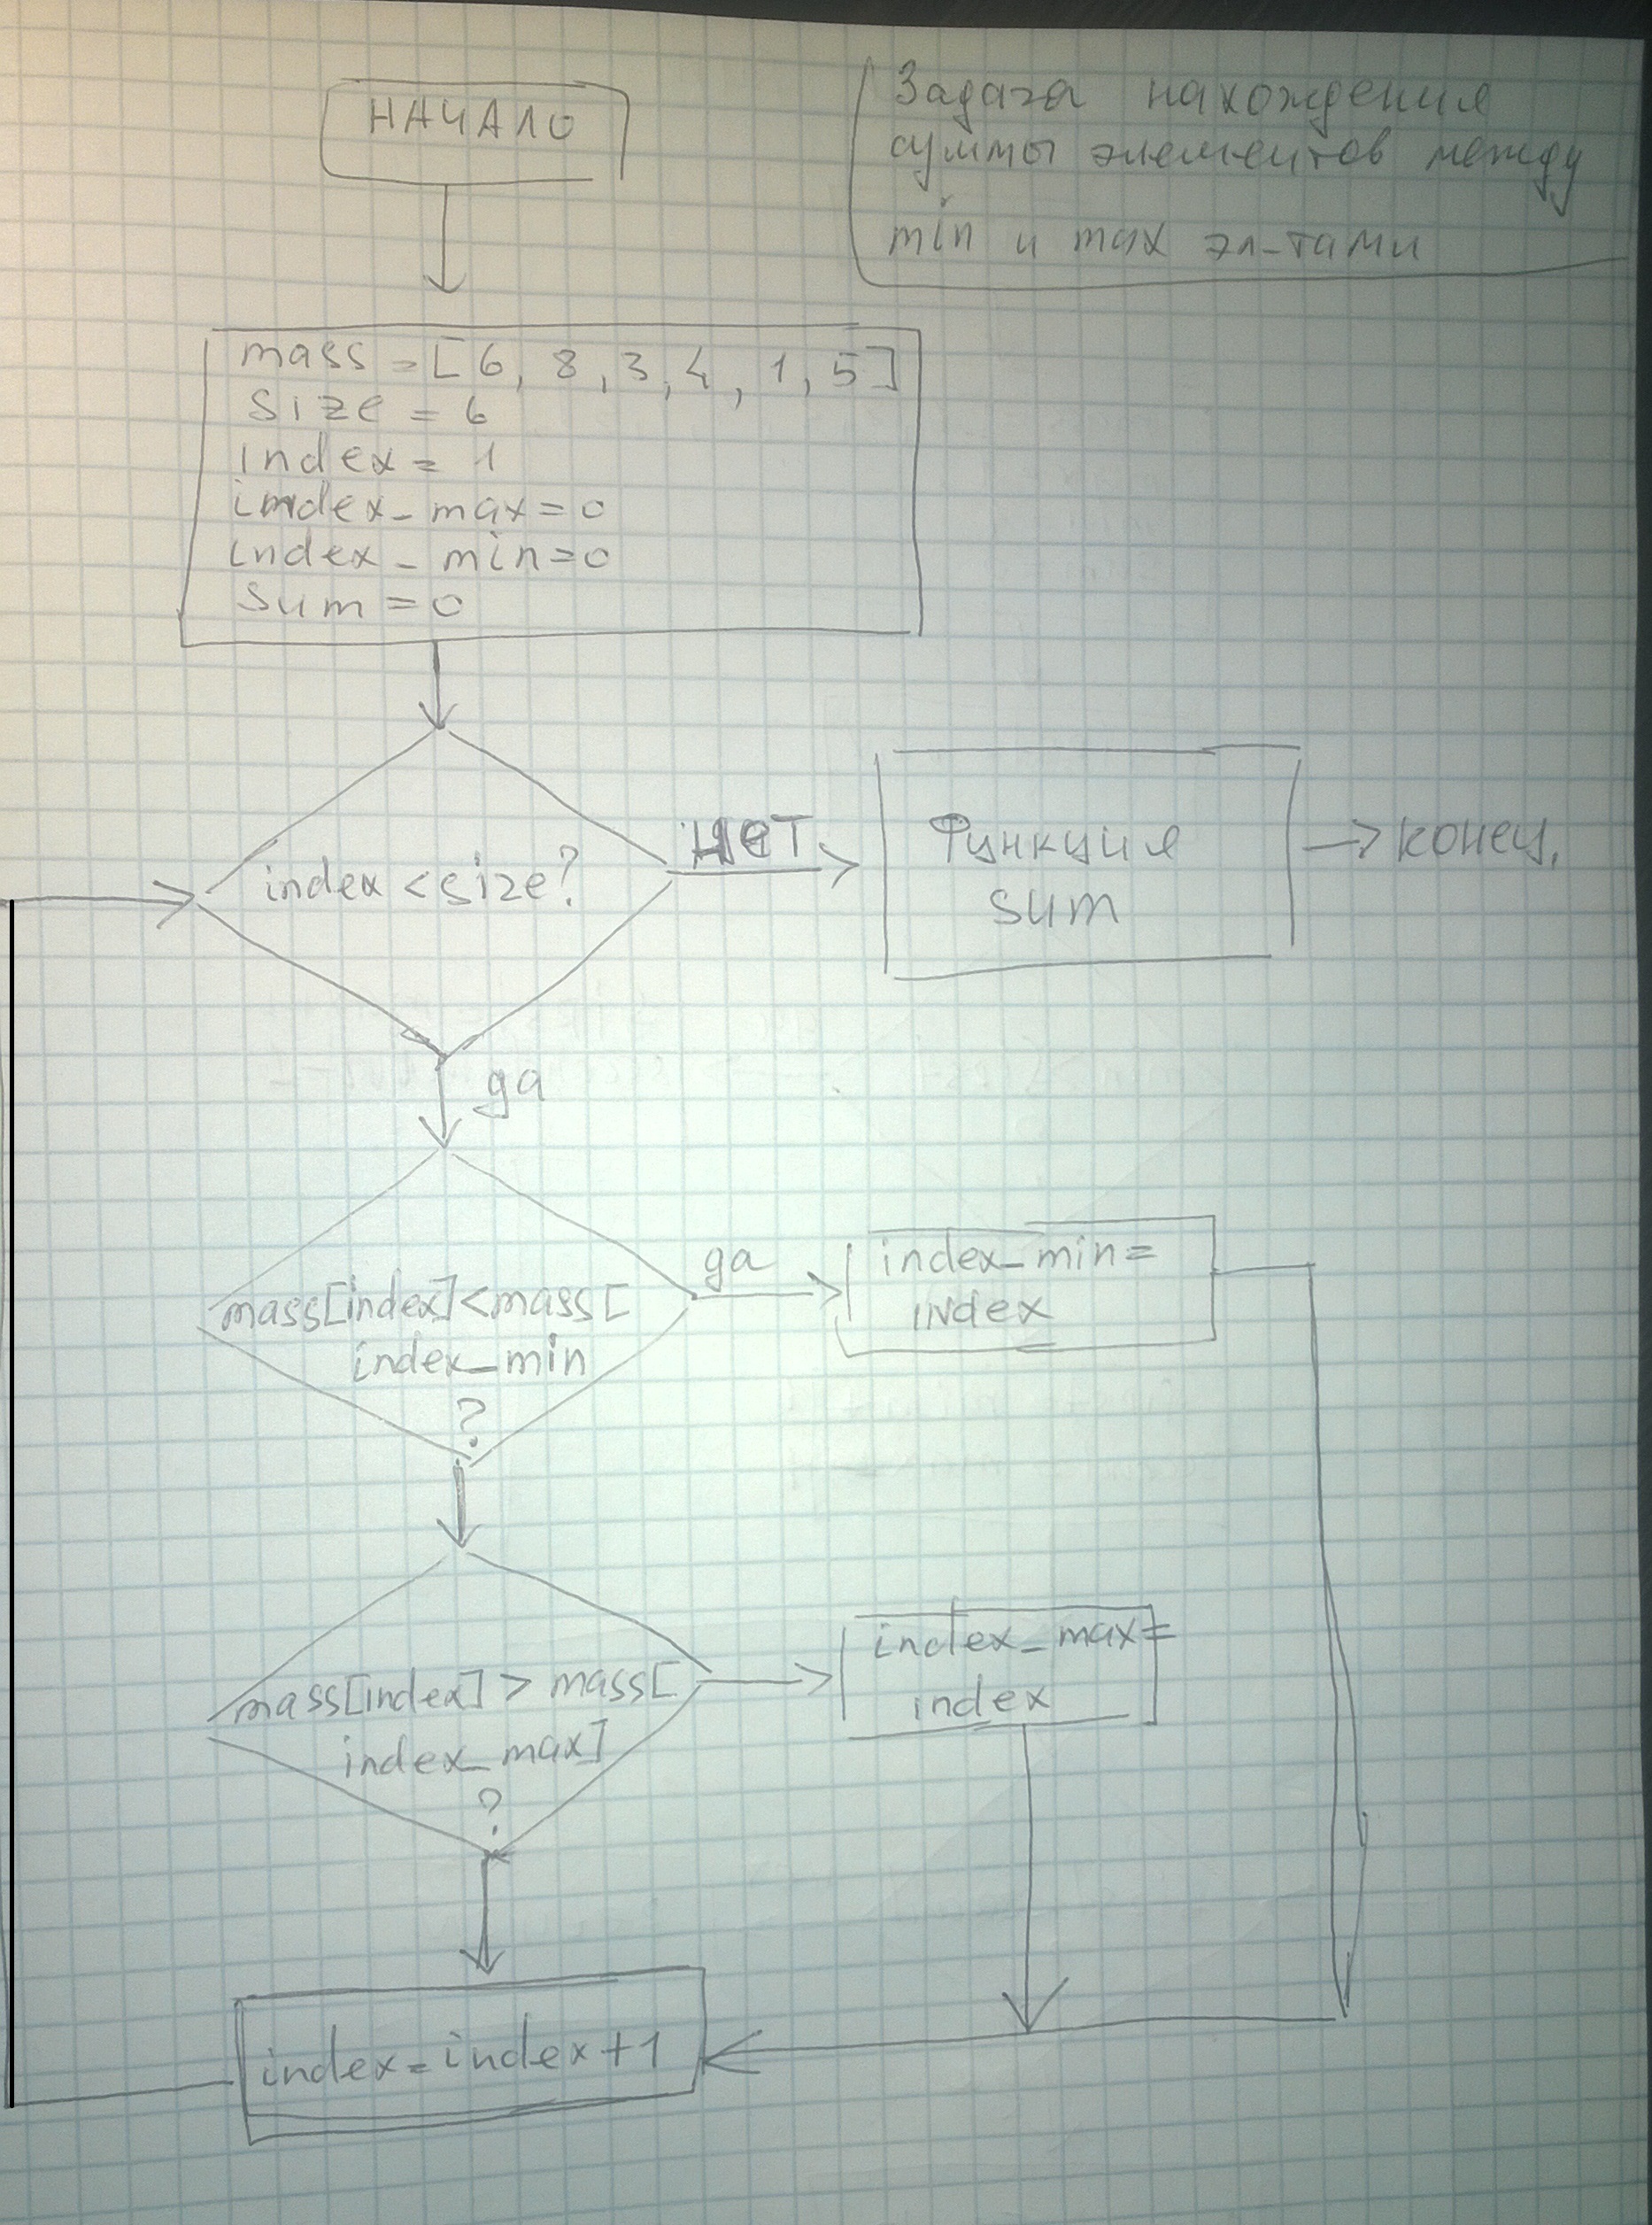 НАЧАЛО
Задача нахождения
суммы элементов между
min и max эл-тами
mass = [6, 8, 3, 4, 1, 5]
size = 6
index = 1
index_max = 0
index_min = 0
sum = 0
index < size?
нет
Функция
sum
конец.
да
mass[index] < mass[
index_min
?
да
index_min =
index
mass[index] > mass[
index_max]
?
index_max =
index
index = index + 1